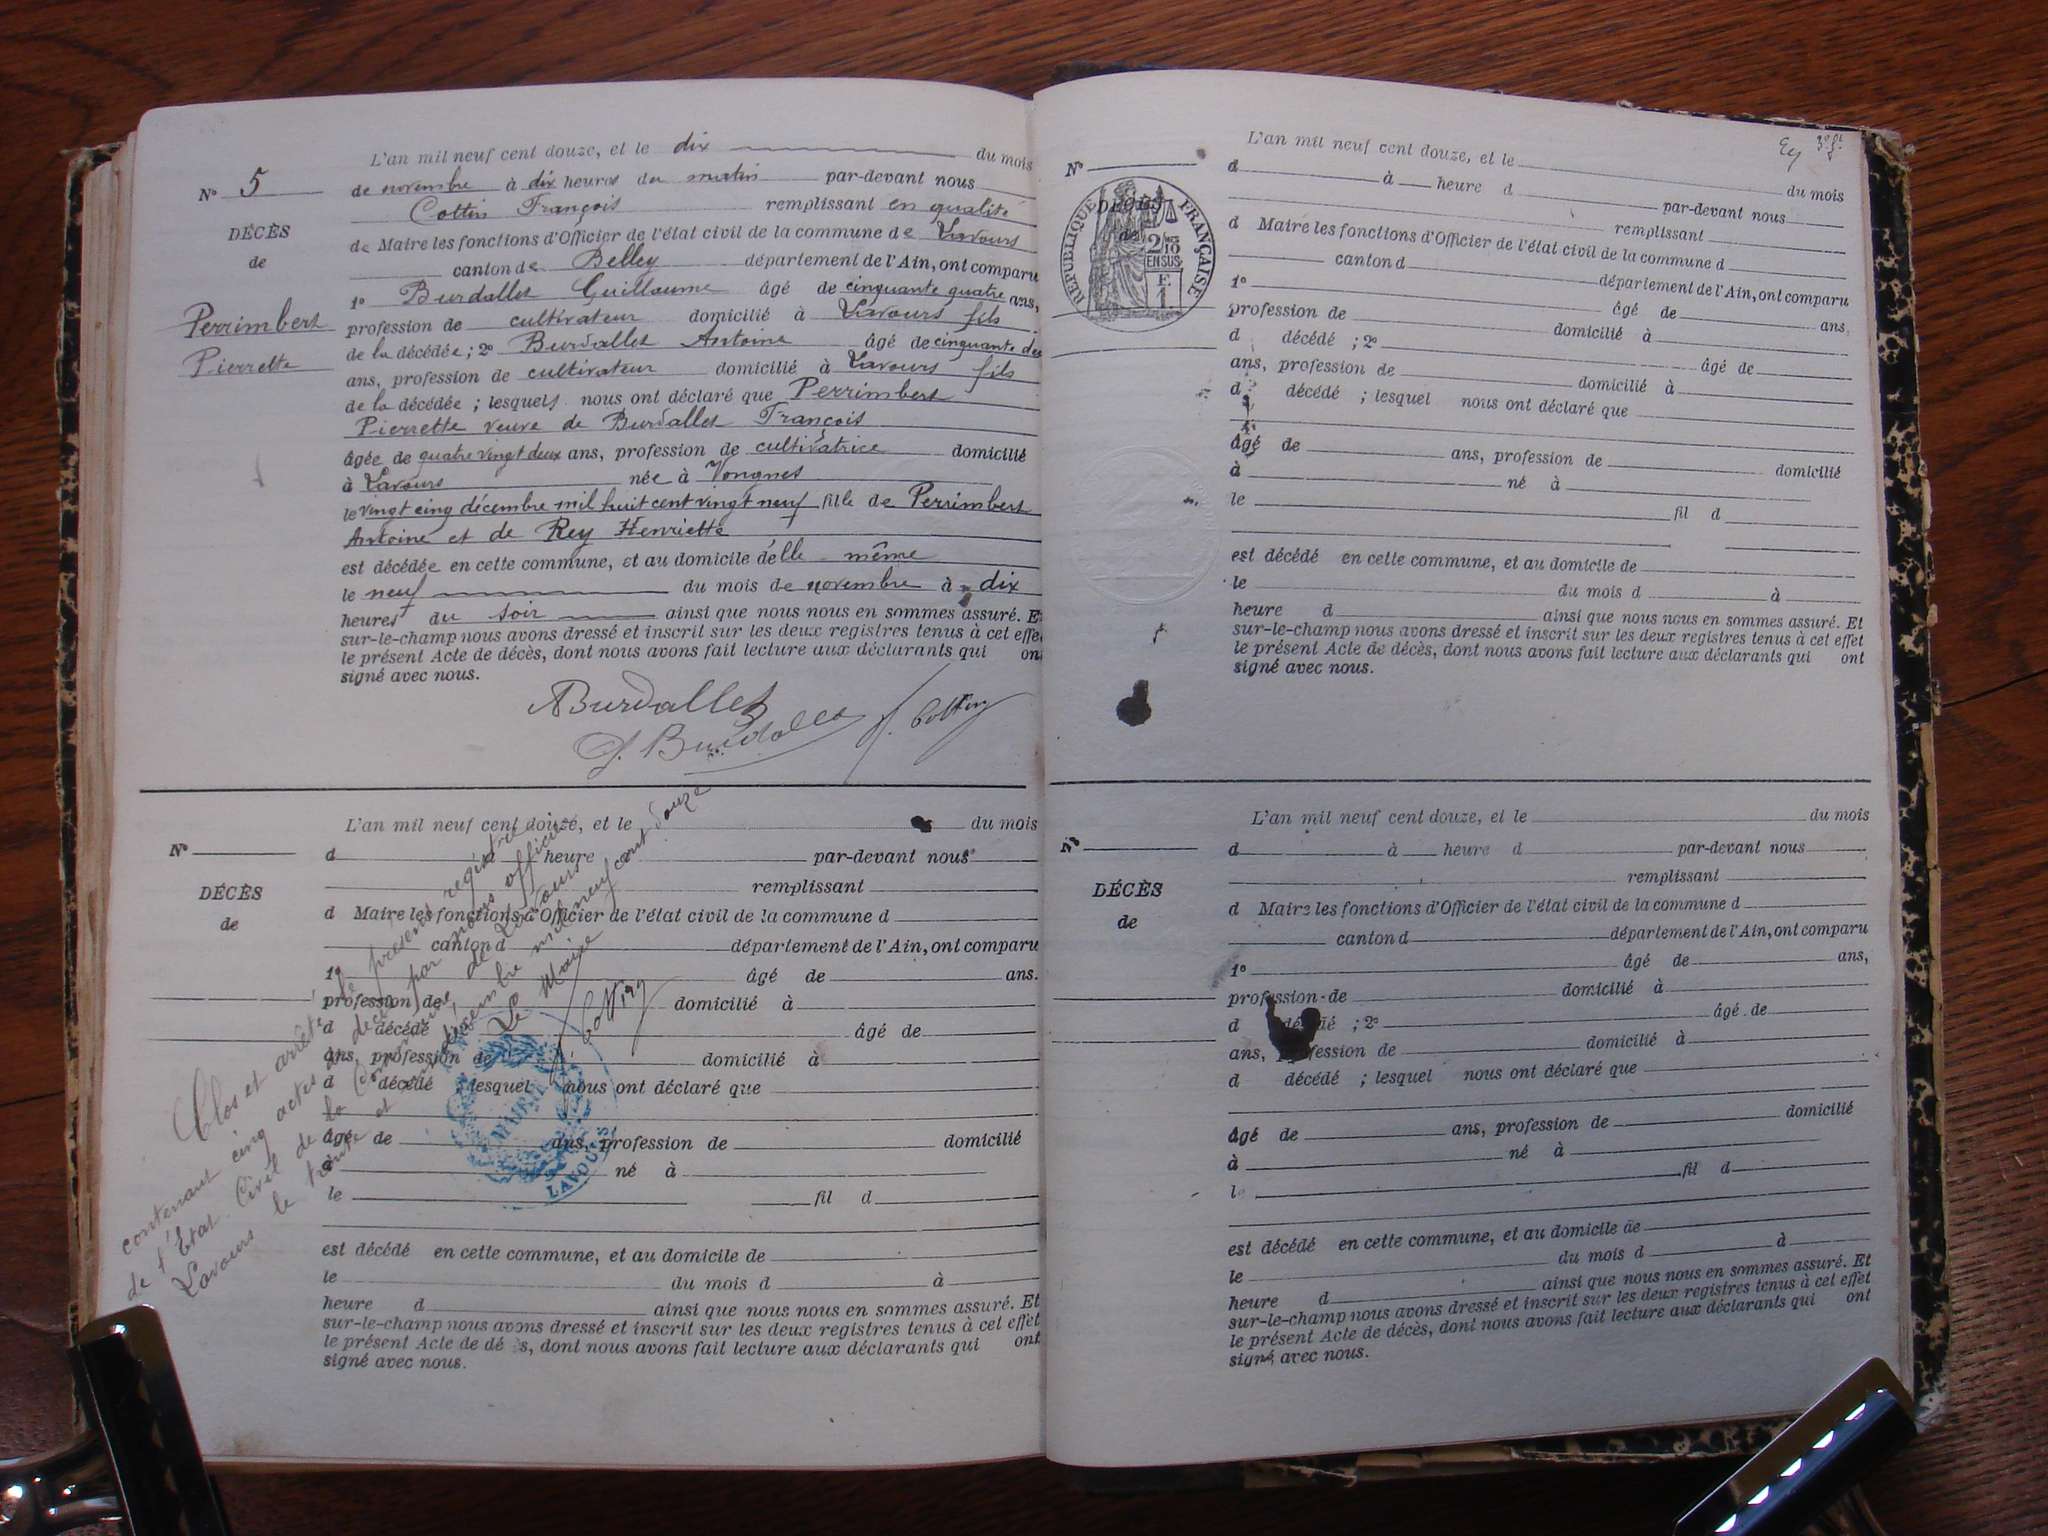 L'an mil neuf cent douze, et le dix du mois
N° 5 de novembre à dix heures du matin par-devant nous
Cottin François remplissant en qualité
DÉCÈS
de Maire les fonctions d'Officier de l'état civil de la commune de Lavours
de
canton de Belley département de l'Ain, ont comparu
1° Burdallet Guillaume âgé de cinquante quatre ans,
Perrimbert
profession de cultivateur domicilié à Lavours fils
de la décédée; 2° Burdallet Antoine âgé de cinquante
Pierrette
ans, profession de cultivateur domicilié à Lavours fils
de la décédée; lesquels nous ont déclaré que Perrimbert
Pierrette veuve de Burdallet François
âgée de quatre vingt deux ans, profession de cultivatrice domicilié
à Lavours née à Vongnes
le vingt cinq décembre mil huit cent vingt neuf fille de Perrimbert
Antoine et de Rey Henriette
est décédée en cette commune, et au domicile d'elle même
le neuf du mois de novembre à dix
heures du soir ainsi que nous nous en sommes assuré. Et
sur-le-champ nous avons dressé et inscrit sur les deux registres tenus à cet effet
le présent Acte de décès, dont nous avons fait lecture aux déclarants qui ont
signé avec nous.
ABurdallet
G. Burdallet
f. Cottin
L'an mil neuf cent douze, et le du mois
N° d heure par-devant nous
remplissant
DÉCÈS
d Maire les fonctions d'Officier de l'état civil de la commune d
de
canton d département de l'Ain, ont comparu
1° âgé de ans.
profession de domicilié à
d décédé âgé de
ans, profession de domicilié à
d décédé lesquel nous ont déclaré que
âgé de ans, profession de domicilié
à né à
le fil d
est décédé en cette commune, et au domicile de
le du mois d à
heure d ainsi que nous nous en sommes assuré. Et
sur-le-champ nous avons dressé et inscrit sur les deux registres tenus à cet effet
le présent Acte de décès, dont nous avons fait lecture aux déclarants qui ont
signé avec nous.
Clos et arrêté le présent registre
contenant cinq actes de décès par nous officier
de l'État-Civil de la Commune de Lavours
Lavours le trente et un décembre mil neuf cent douze
Le Maire
f. Cottin
MAIRIE
LAVOURS
L'an mil neuf cent douze, et le du mois
N° d à heure d par-devant nous
remplissant
DÉCÈS
de
RÉPUBLIQUE FRANÇAISE
2/10
EN SUS
F
1
d Maire les fonctions d'Officier de l'état civil de la commune d
canton d département de l'Ain, ont comparu
1° âgé de ans,
profession de domicilié à
d décédé; 2° âgé de
ans, profession de domicilié à
d décédé; lesquel nous ont déclaré que
âgé de ans, profession de domicilié
à né à
le fil d
est décédé en cette commune, et au domicile de
le du mois d à
heure d ainsi que nous nous en sommes assuré. Et
sur-le-champ nous avons dressé et inscrit sur les deux registres tenus à cet effet
le présent Acte de décès, dont nous avons fait lecture aux déclarants qui ont
signé avec nous.
L'an mil neuf cent douze, et le du mois
N° d à heure d par-devant nous
remplissant
DÉCÈS
d Maire les fonctions d'Officier de l'état civil de la commune d
de
canton d département de l'Ain, ont comparu
1° âgé de ans,
profession de domicilié à
d décédé; 2° âgé de
ans, profession de domicilié à
d décédé; lesquel nous ont déclaré que
âgé de ans, profession de domicilié
à né à
le fil d
est décédé en cette commune, et au domicile de
le du mois d à
heure d ainsi que nous nous en sommes assuré. Et
sur-le-champ nous avons dressé et inscrit sur les deux registres tenus à cet effet
le présent Acte de décès, dont nous avons fait lecture aux déclarants qui ont
signé avec nous.